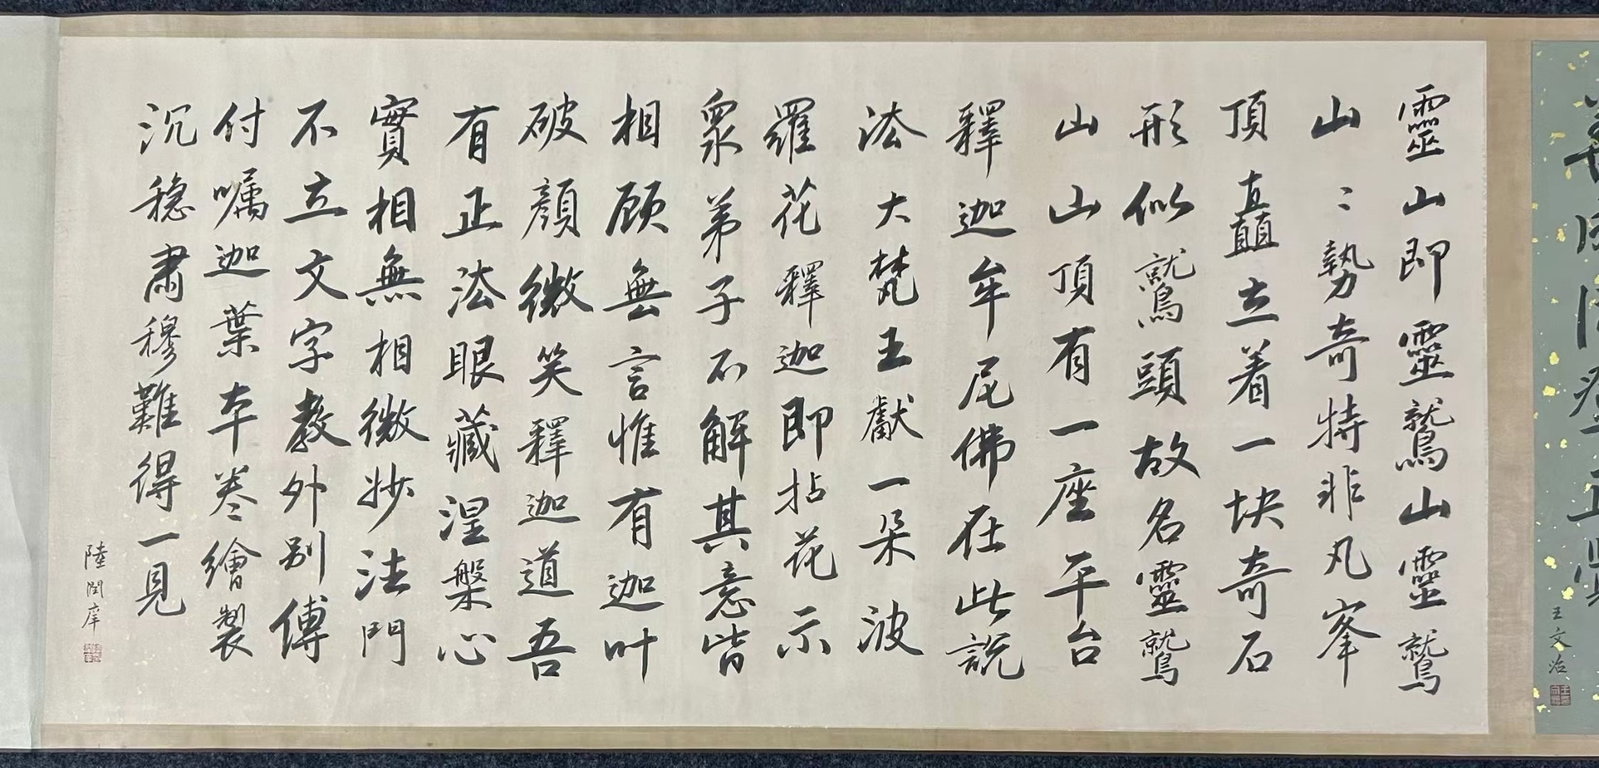 靈山即靈鷲山靈鷲
山〻勢奇特非凡峯
頂矗立着一块奇石
形似鷲頭故名靈鷲
山山頂有一座平台
釋迦牟尼佛在此説
法大梵王獻一朵波
羅花釋迦即拈花示
衆弟子不解其意皆
相顾無言惟有迦叶
破顔微笑釋迦道吾
有正法眼藏涅槃心
實相無相微妙法門
不立文字教外别傳
付嘱迦葉本卷繪製
沉穏肅穆難得一見
陸潤庠
王文治